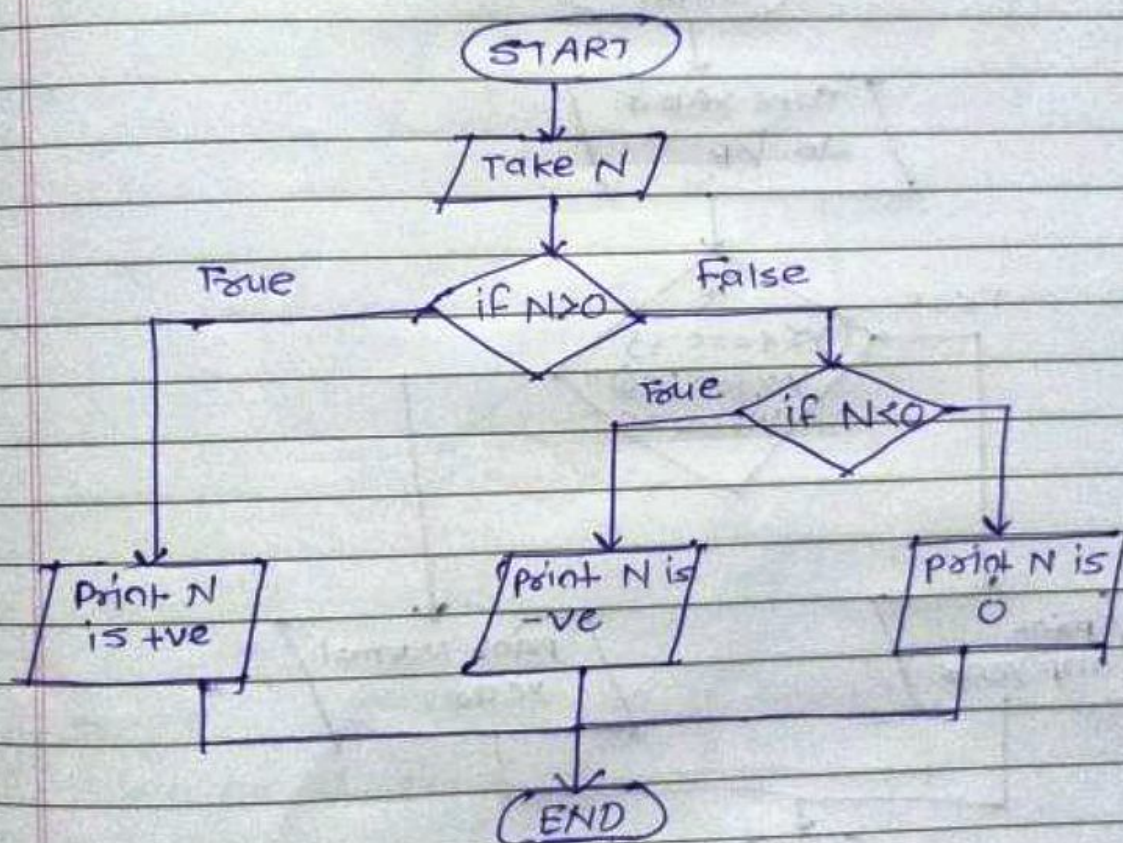 START
Take N
True
if N>0
False
True
if N<0
Print N
is +ve
print N is
-ve
print N is
0
END